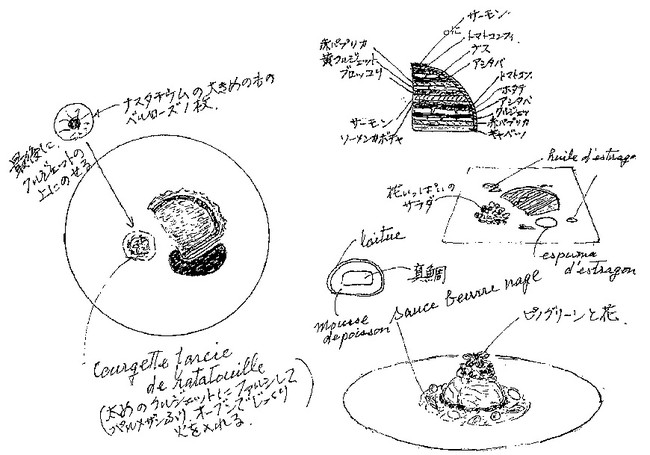 ナスタチウムの大きめのもの
ペルローズ1枚
最後に
クルジェットの
上にのせる
courgette farcie
de ratatouille
(太めのクルジェットにファルシして
パルメザンふり オーブンでじっくり
火を入れる)
サーモン
花
トマトコンフィ
ナス
アシタバ
トマトコン
ホタテ
アシタバ
クルジェッ
赤パプリカ
キャベツ
赤パプリカ
黄クルジェット
ブロッコリ
サーモン
ソーメンカボチャ
huile d'estragon
花いっぱいの
サラダ
espuma
d'estragon
laitue
真鯛
mousse
de poisson
sauce beurre nage
ピノグリーンと花